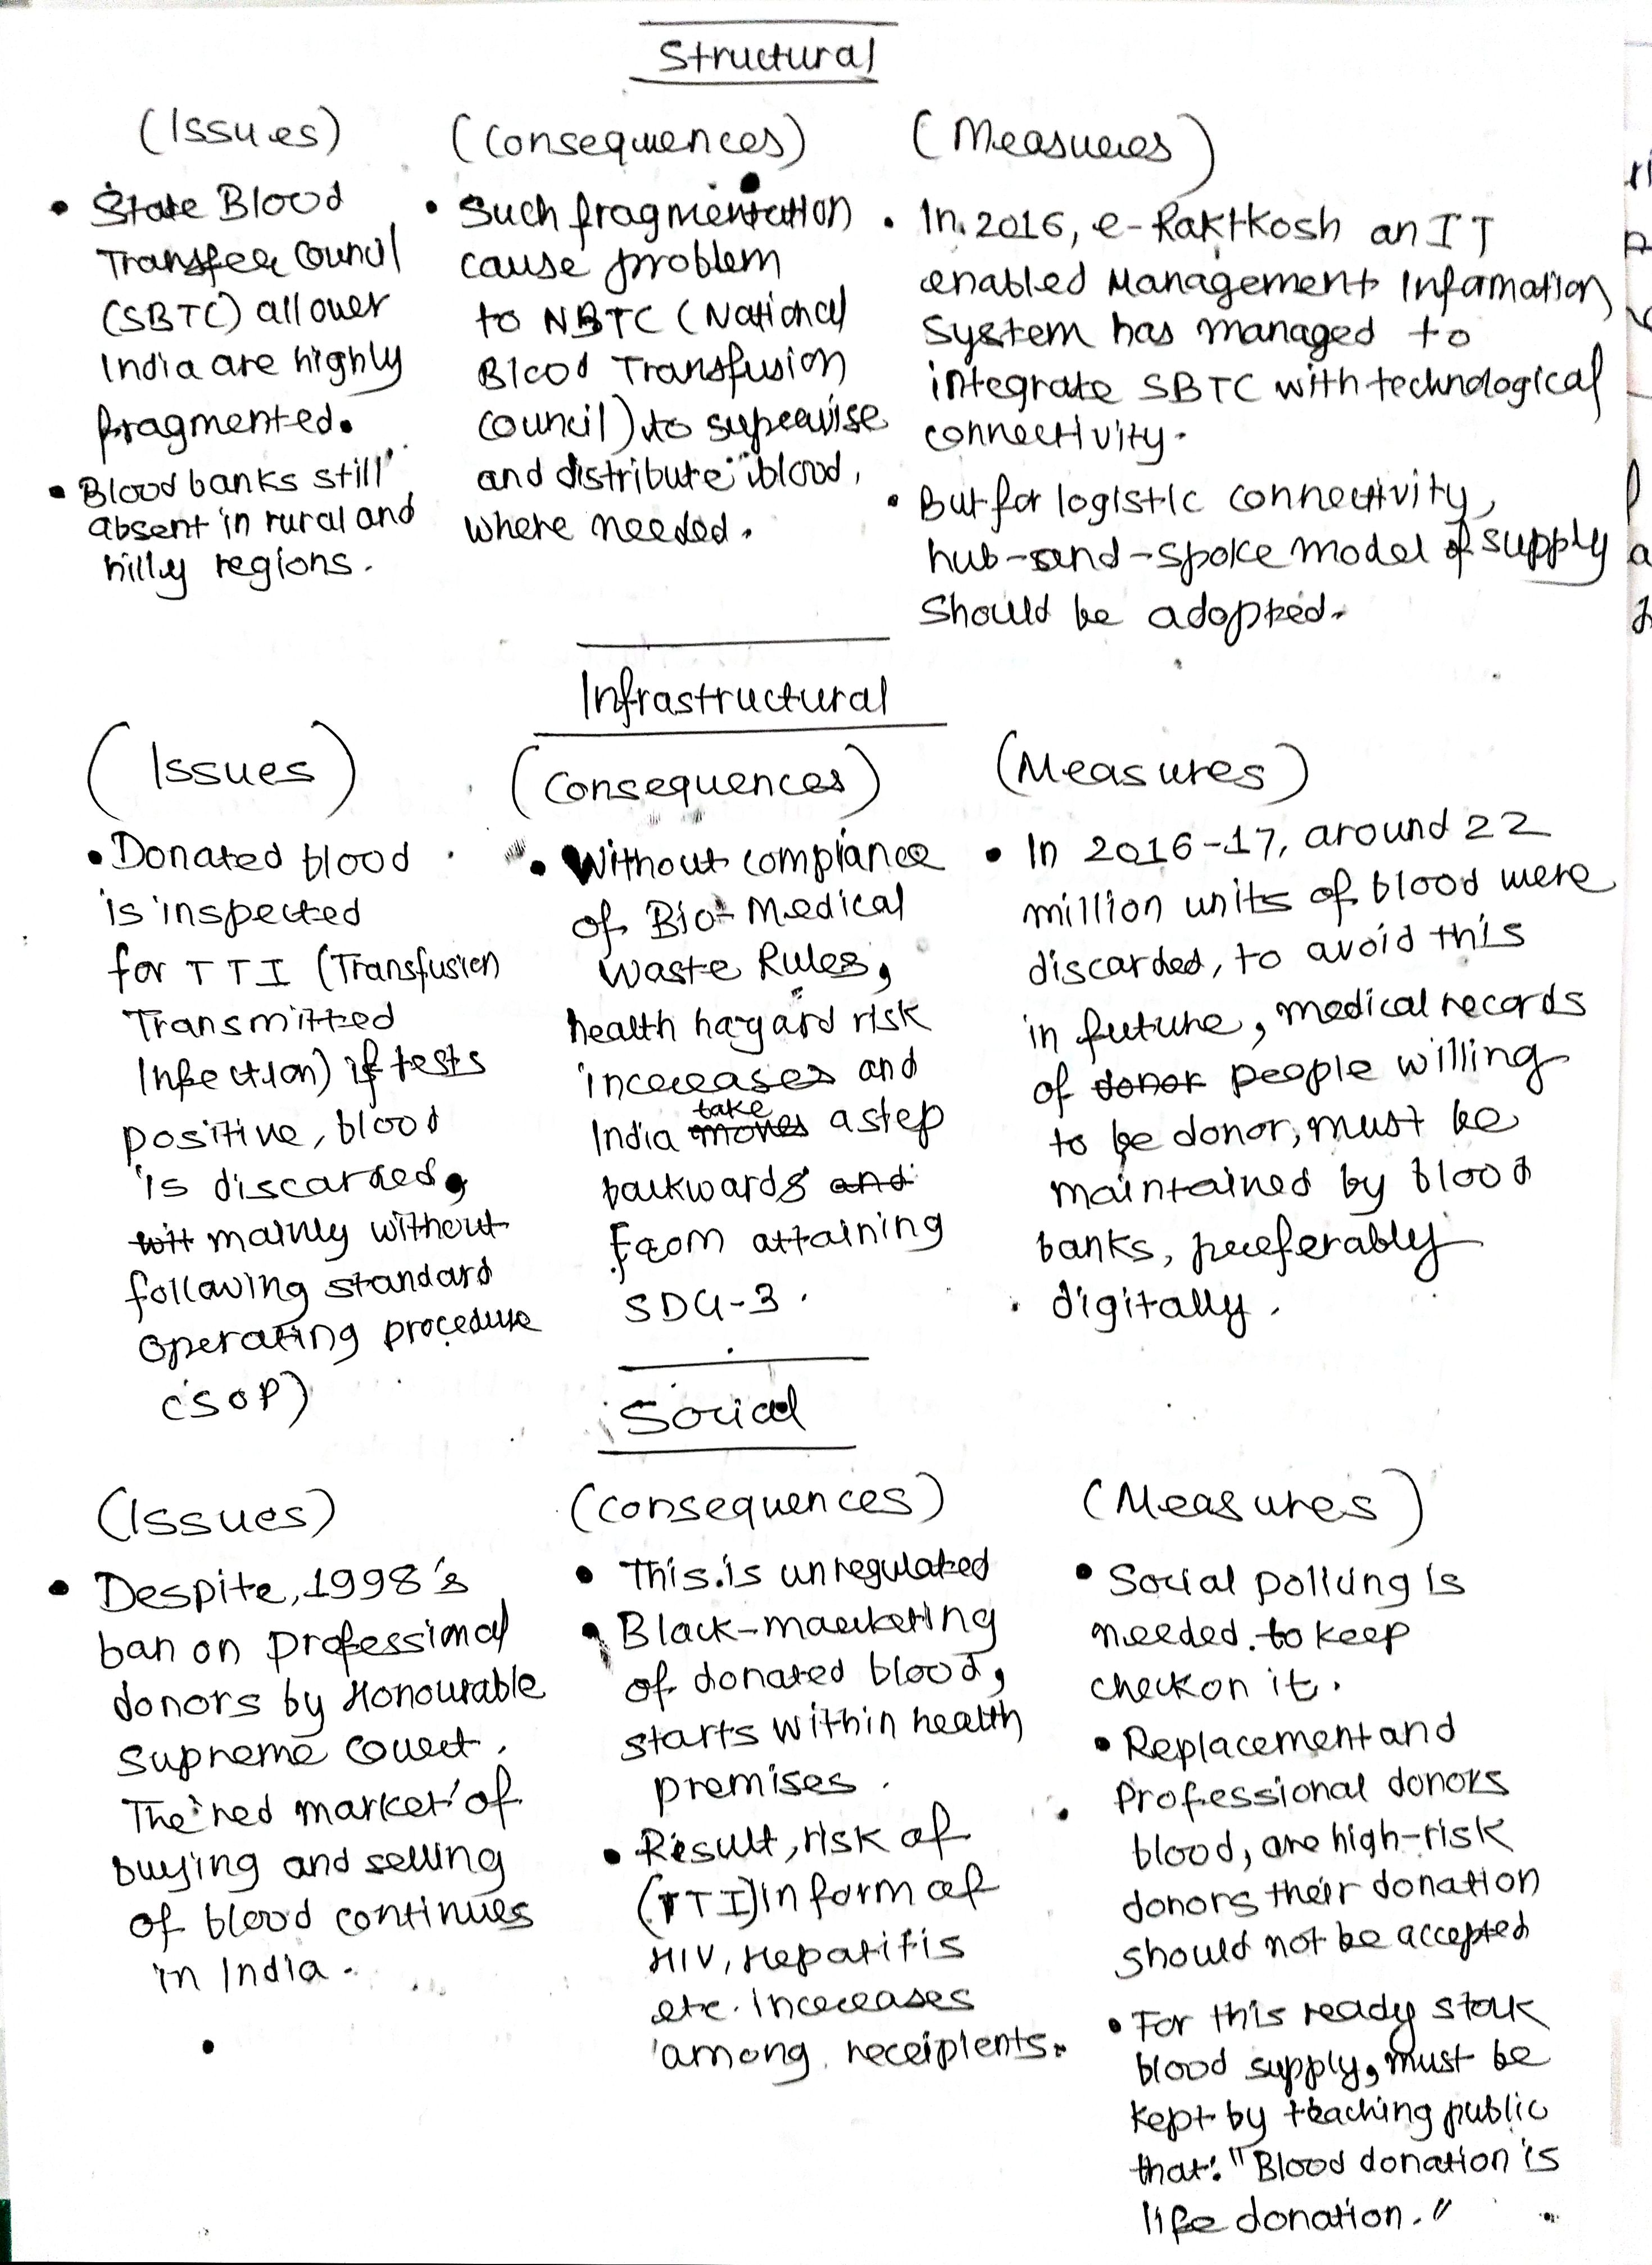 Structural
(Issues)
• State Blood
Transfer Council
(SBTC) all over
India are highly
fragmented.
• Blood banks still
absent in rural and
hilly regions.
(Consequences)
• Such fragmentation
cause problem
to NBTC (National
Blood Transfusion
Council) to supervise
and distribute blood,
where needed.
(Measures)
• In 2016, e-RaktKosh an IT
enabled Management Infamation
System has managed to
integrate SBTC with technological
connectivity.
• But for logistic connectivity,
hub-and-spoke model of supply
should be adopted.
Infrastructural
(Issues)
• Donated blood
is inspected
for TTI (Transfusion
Transmitted
Infection) if tests
positive, blood
is discarded,
mainly without
following standard
operating procedure
(SOP)
(Consequences)
• Without compiance
of Bio-Medical
Waste Rules,
health hazard risk
increases and
India take a step
backwards and
from attaining
SDG-3.
(Measures)
• In 2016-17, around 22
million units of blood were
discarded, to avoid this
in future, medical records
of donor people willing
to be donor, must be
maintained by blood
banks, preferably
digitally.
Social
(Issues)
• Despite, 1998's
ban on professional
donors by Honourable
Supreme Court.
The 'red market' of
buying and selling
of blood continues
in India.
(Consequences)
• This is unregulated
• Black-marketing
of donated blood,
starts within health
premises.
• Result, risk of
(TTI) in form of
HIV, Hepatitis
etc. increases
among receipients.
(Measures)
• Social policing is
needed to keep
check on it.
• Replacement and
Professional donors
blood, are high-risk
donors their donation
should not be accepted
• For this ready stock
blood supply, must be
kept by teaching public
that: "Blood donation is
life donation."